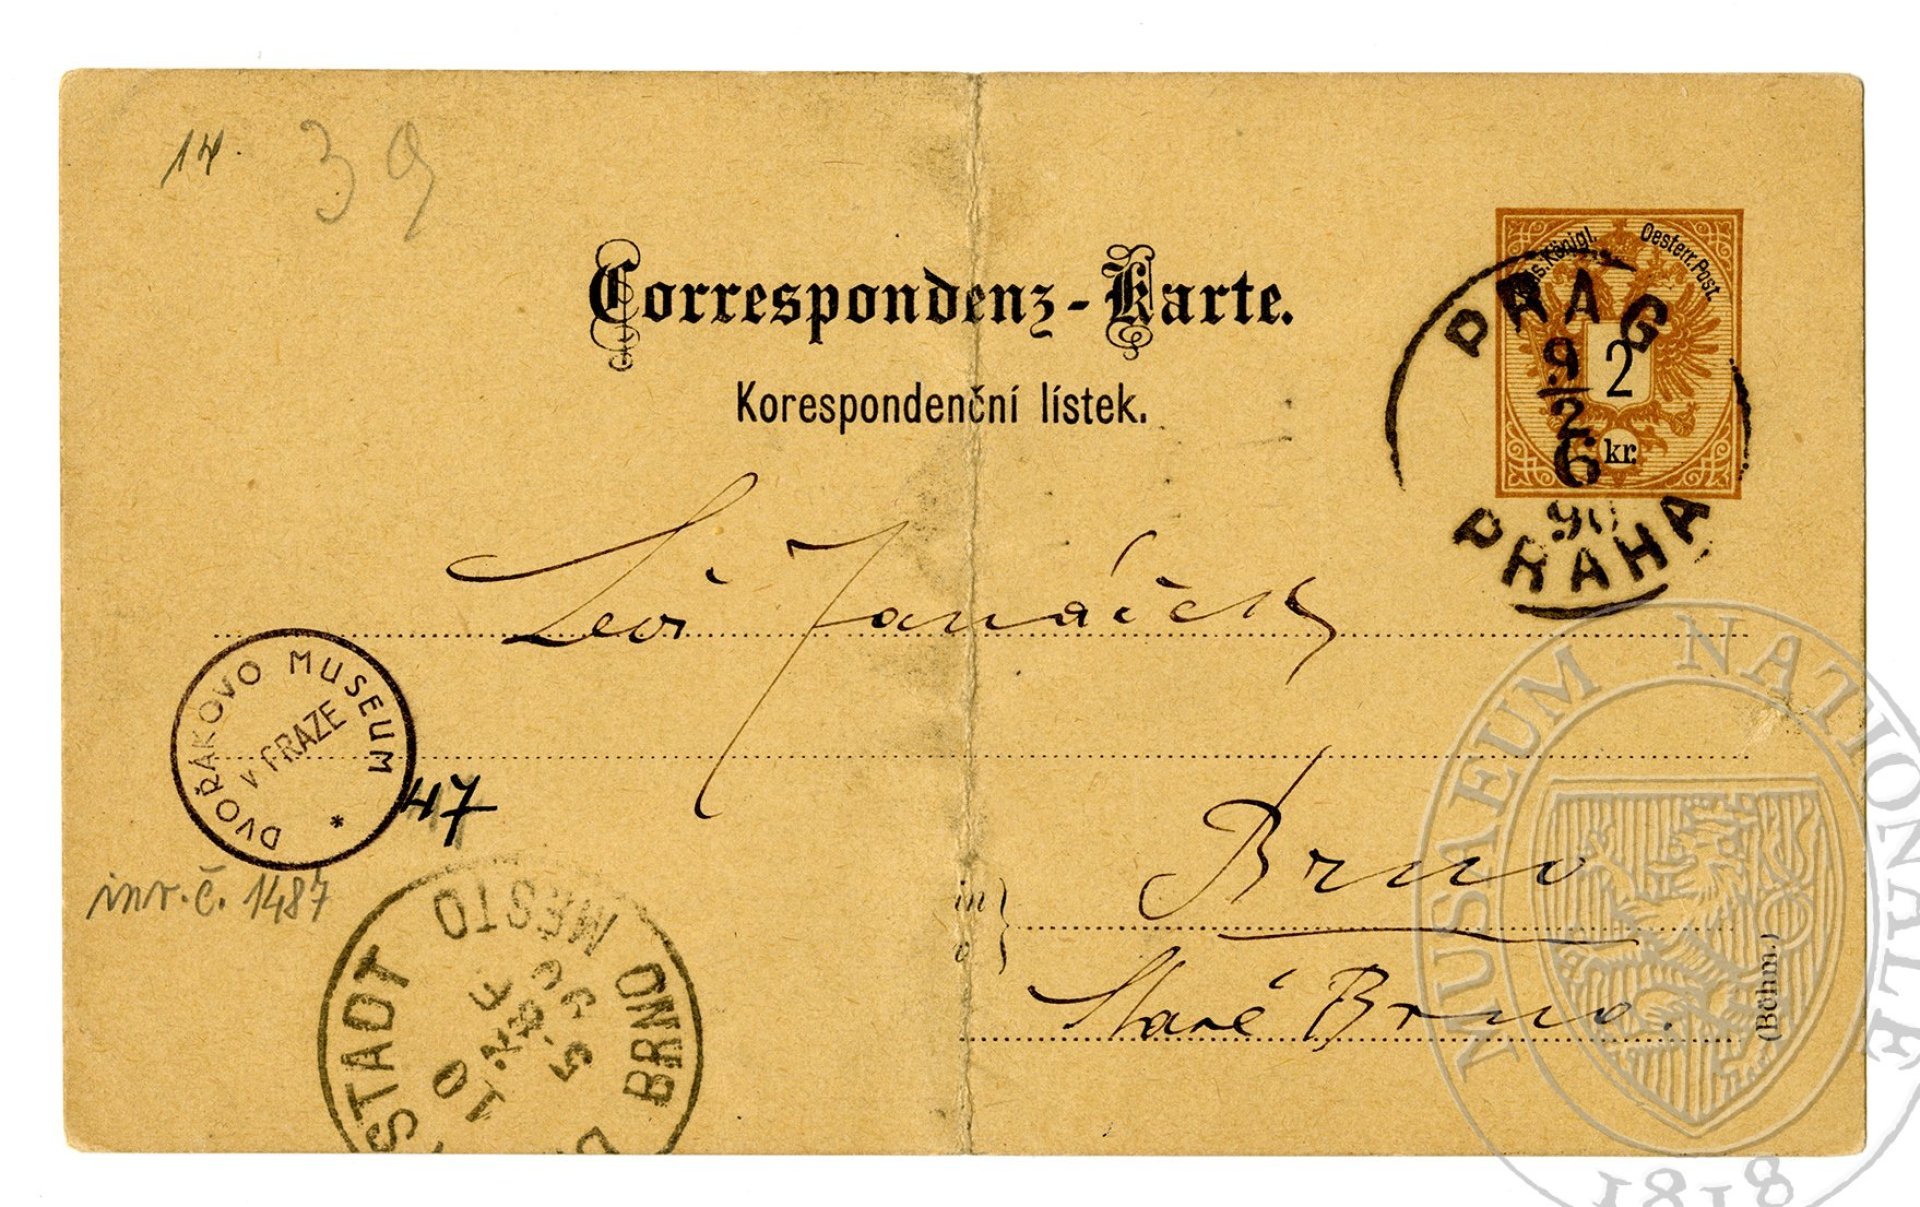 14. 39
Correspondenz-Karte.
Korespondenční lístek.
Kais. Königl. Oesterr. Post.
2
kr.
PRAG
9/2
6
90
PRAHA
Leoš Janáček
DVOŘÁKOVO MUSEUM
V PRAZE
*
47
inv. č. 1487
in
v
Brno
Staré Brno.
(Böhm.)
STADT
BRNO MĚSTO
10
MUSAEUM NATIONALE
1818